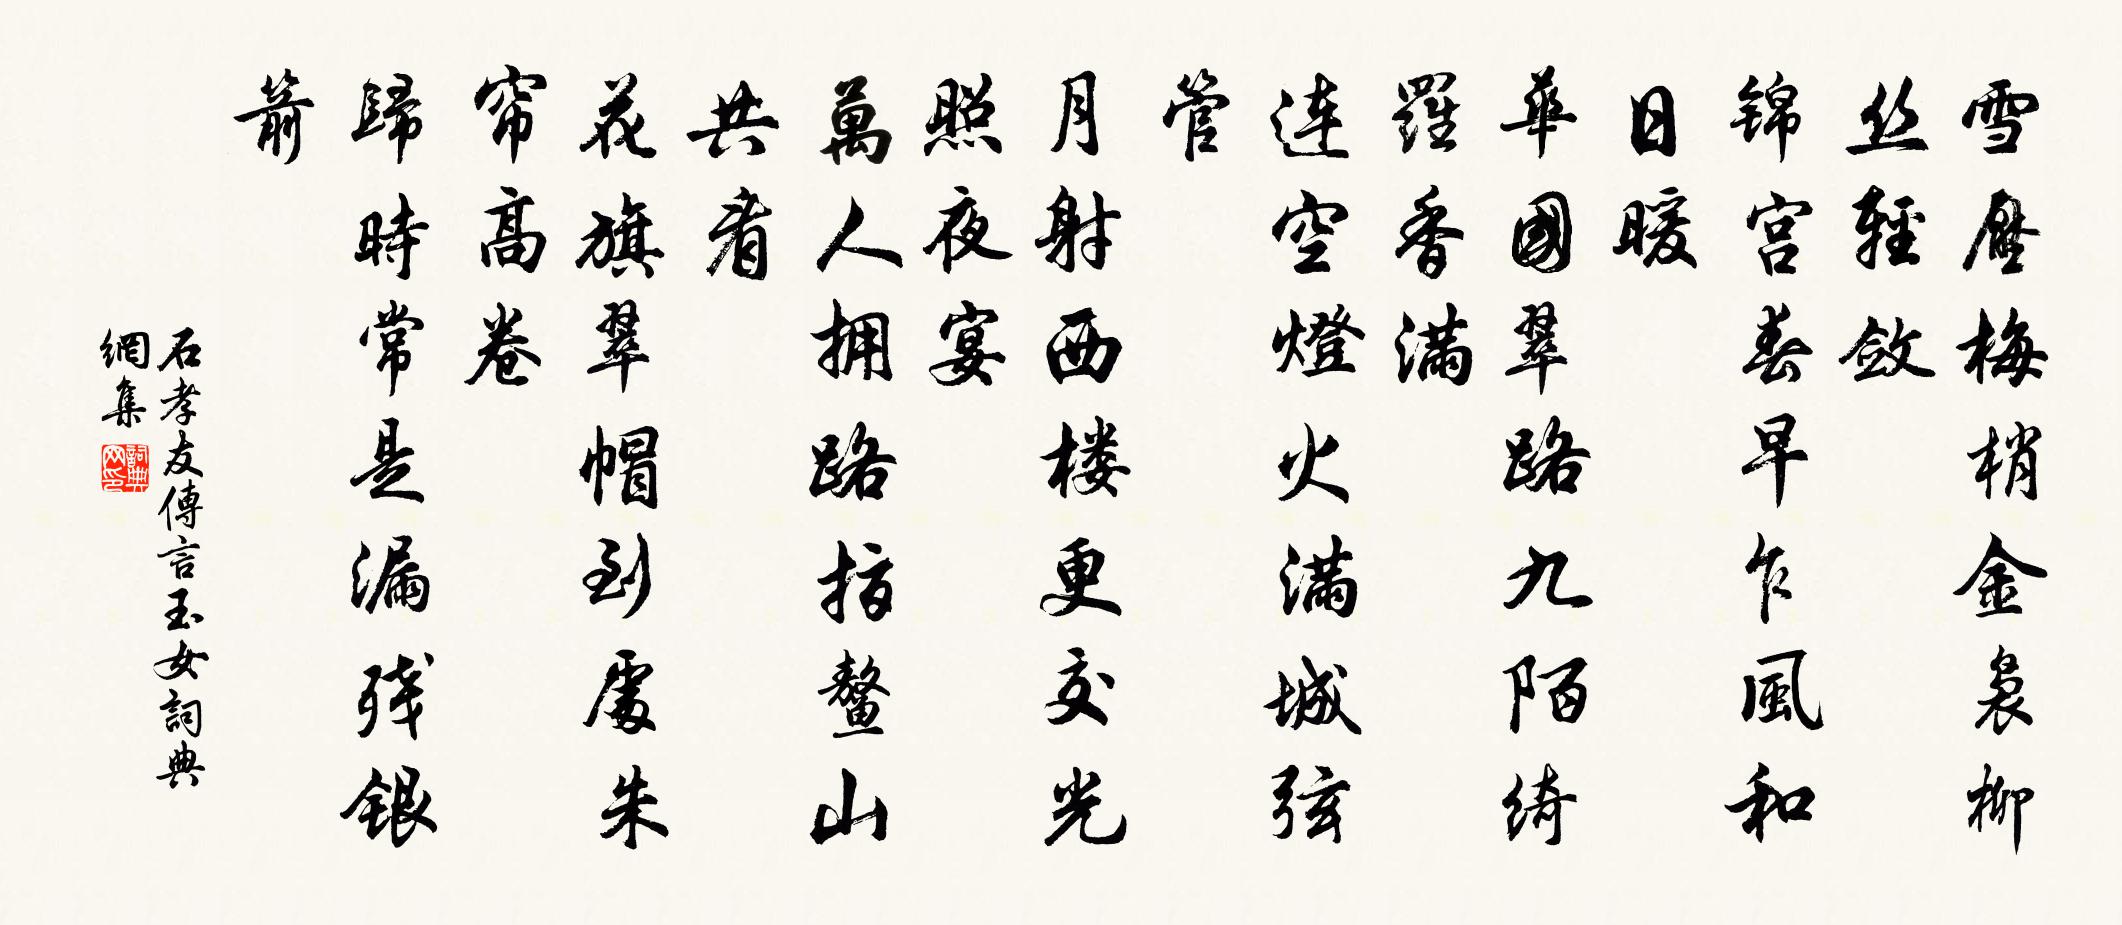 雪壓梅梢金裊柳
丝輕斂
锦宫春早乍風和
日暖
華國翠路九陌綺
羅香滿
连空燈火滿城弦
管
月射西楼更交光
照夜宴
萬人拥路指鳌山
共看
花旗翠帽到處朱
帘高卷
歸時常是漏残銀
箭
石孝友傳言玉女詞典
網集
詞典
网印